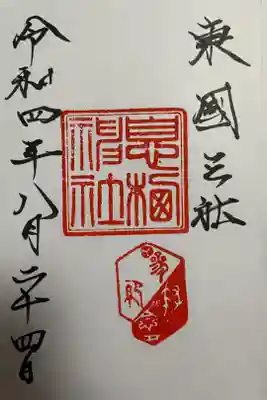 東國三社
息栖
神社
令和四年八月二十四日